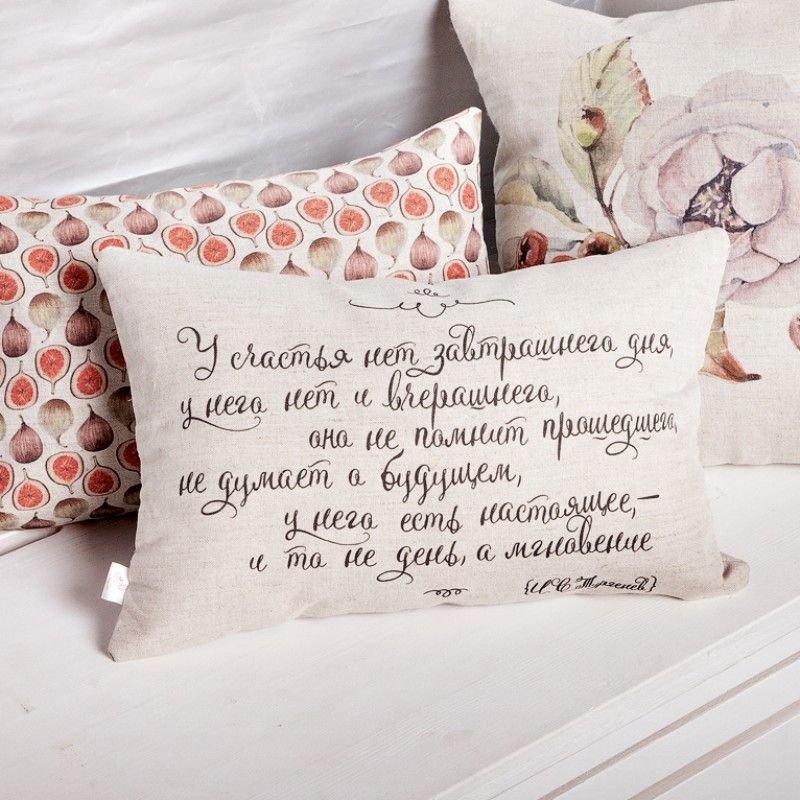 У счастья нет завтрашнего дня,
у него нет и вчерашнего,
оно не помнит прошедшего,
не думает о будущем,
у него есть настоящее,–
и то не день, а мгновение
{И С Тургенев}